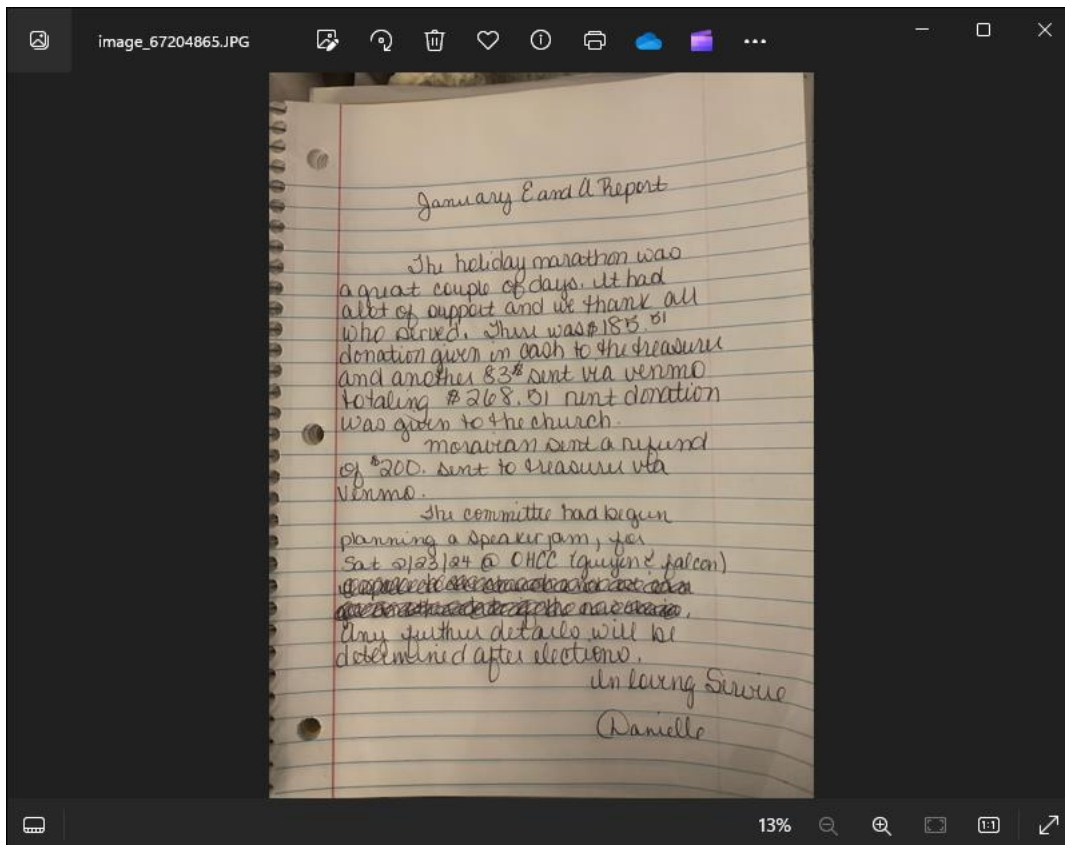 image_67204865.JPG
January E and A Report
The holiday marathon was
a great couple of days. It had
alot of support and we thank all
who served. There was $185.51
donation given in cash to the treasurer
and another 83$ sent via venmo
totaling $268.51 rent donation
was given to the church.
moravian sent a refund
of $200. sent to treasurer via
venmo.
The committee had begun
planning a speaker jam, for
Sat 2/23/24 @ OHCC (guyen & falcon)
Any further details will be
determined after elections.
In loving Service
Danielle
13%
1:1